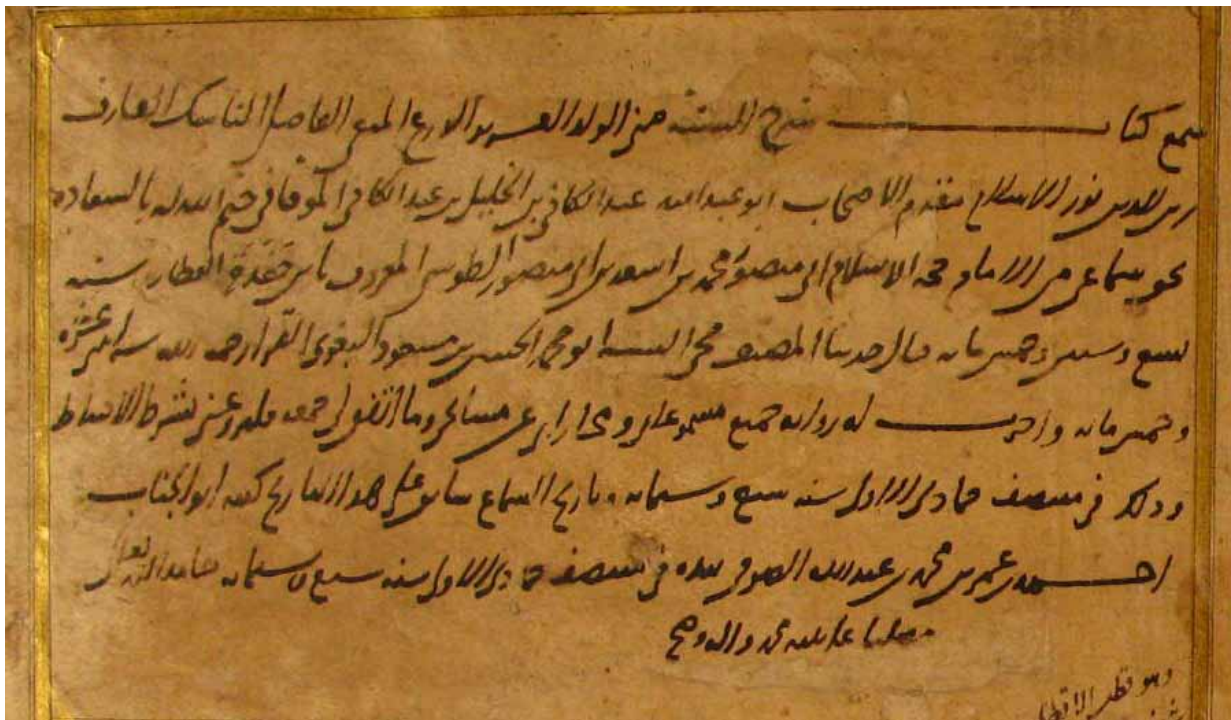 سمع كتاب شرح السنة مني الولد العزيز الورع المتقي الفاضل الناسك العارف
زين الدين نور الاسلام مقدم الاصحاب ابو عبد الله عبد الكافي بن الخليل بن عبد الكافي ختم الله له بالسعادة
بحق سماعي من الامام الاسلام ابي منصور محمد بن اسعد بن ابي منصور الطوسي المعروف بابن حفدة العطار سنة
سبع وستين وخمسمائة قال حدثنا المصنف محيي السنة ابو محمد الحسين بن مسعود البغوي الفرا رحمه الله سنة اثني عشرة
وخمسمائة واجزت له رواية جميع مسموعاتي ومجازاتي عن مشايخي وما اتفق لي جمعه فليرو عني بشرط الاحتياط
وذلك في منتصف جمادى الاول سنة سبع وستمائة وتاريخ السماع سابق على هذا التاريخ كتبه ابو الجناب
احمد بن عمر بن محمد بن عبد الله الصوفي بيده في منتصف جمادى الاول سنة سبع وستمائة حامدا لله تعالى
ومصليا على نبيه محمد واله
وهو قطر